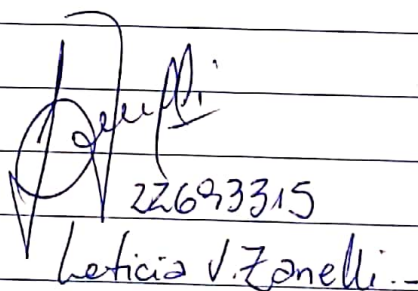 22693315
Leticia V. Zanelli.